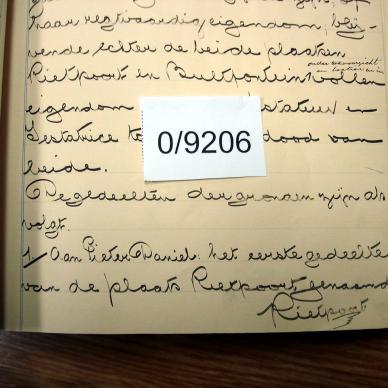 haar regtvaardig eigendom, blij-
vende echter de beide plaatsen
Rietpoort en Bultfontein vollen
eigendom testateur en
Testatrice to dood van
beide.
De gedeelten der gronden zijn als
volgt.
1/ Aan Pieter Daniel: het eerste gedeelte
van de plaats Rietpoort, genaamd
Rietpoort
0/9206